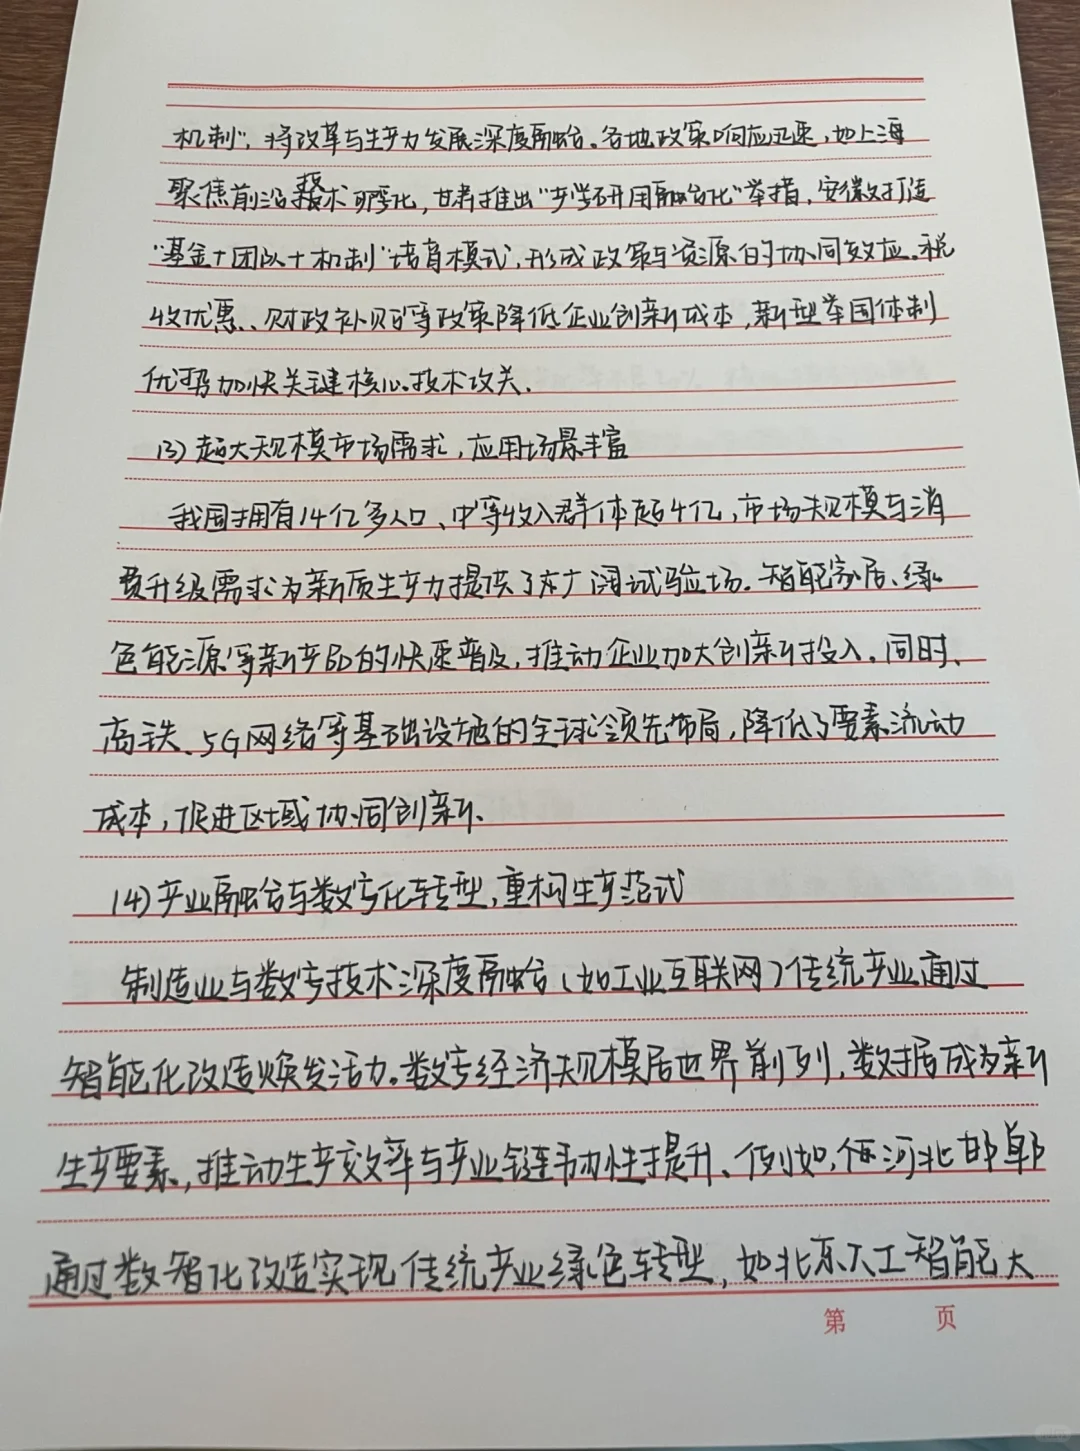 机制”,将改革与生产力发展深度融合。各地政策响应迅速,如上海
聚焦前沿技术孵化,甘肃推出“产学研用融合化”举措,安徽打造
“基金+团队+机制”诸育模式,形成政策与资源的协同效应。税
收优惠、财政补贴等政策降低企业创新成本,新型举国体制
优势加快关键核心技术攻关。
(3)超大规模市场需求,应用场景丰富
我国拥有14亿多人口、中等收入群体超4亿,市场规模与消
费升级需求为新质生产力提供了广阔试验场。智能家居、绿
色能源等新产品的快速普及,推动企业加大创新投入。同时、
高铁、5G网络等基础设施的全球领先布局,降低了要素流动
成本,促进区域协同创新、
(4)产业融合与数字化转型,重构生产范式
制造业与数字技术深度融合(如工业互联网)传统产业通过
智能化改造焕发活力。数字经济规模居世界前列,数据成为新
生产要素,推动生产效率与产业链韧性提升、例如,河北邯郸
通过数智化改造实现传统产业绿色转型,如北京人工智能大
第 页